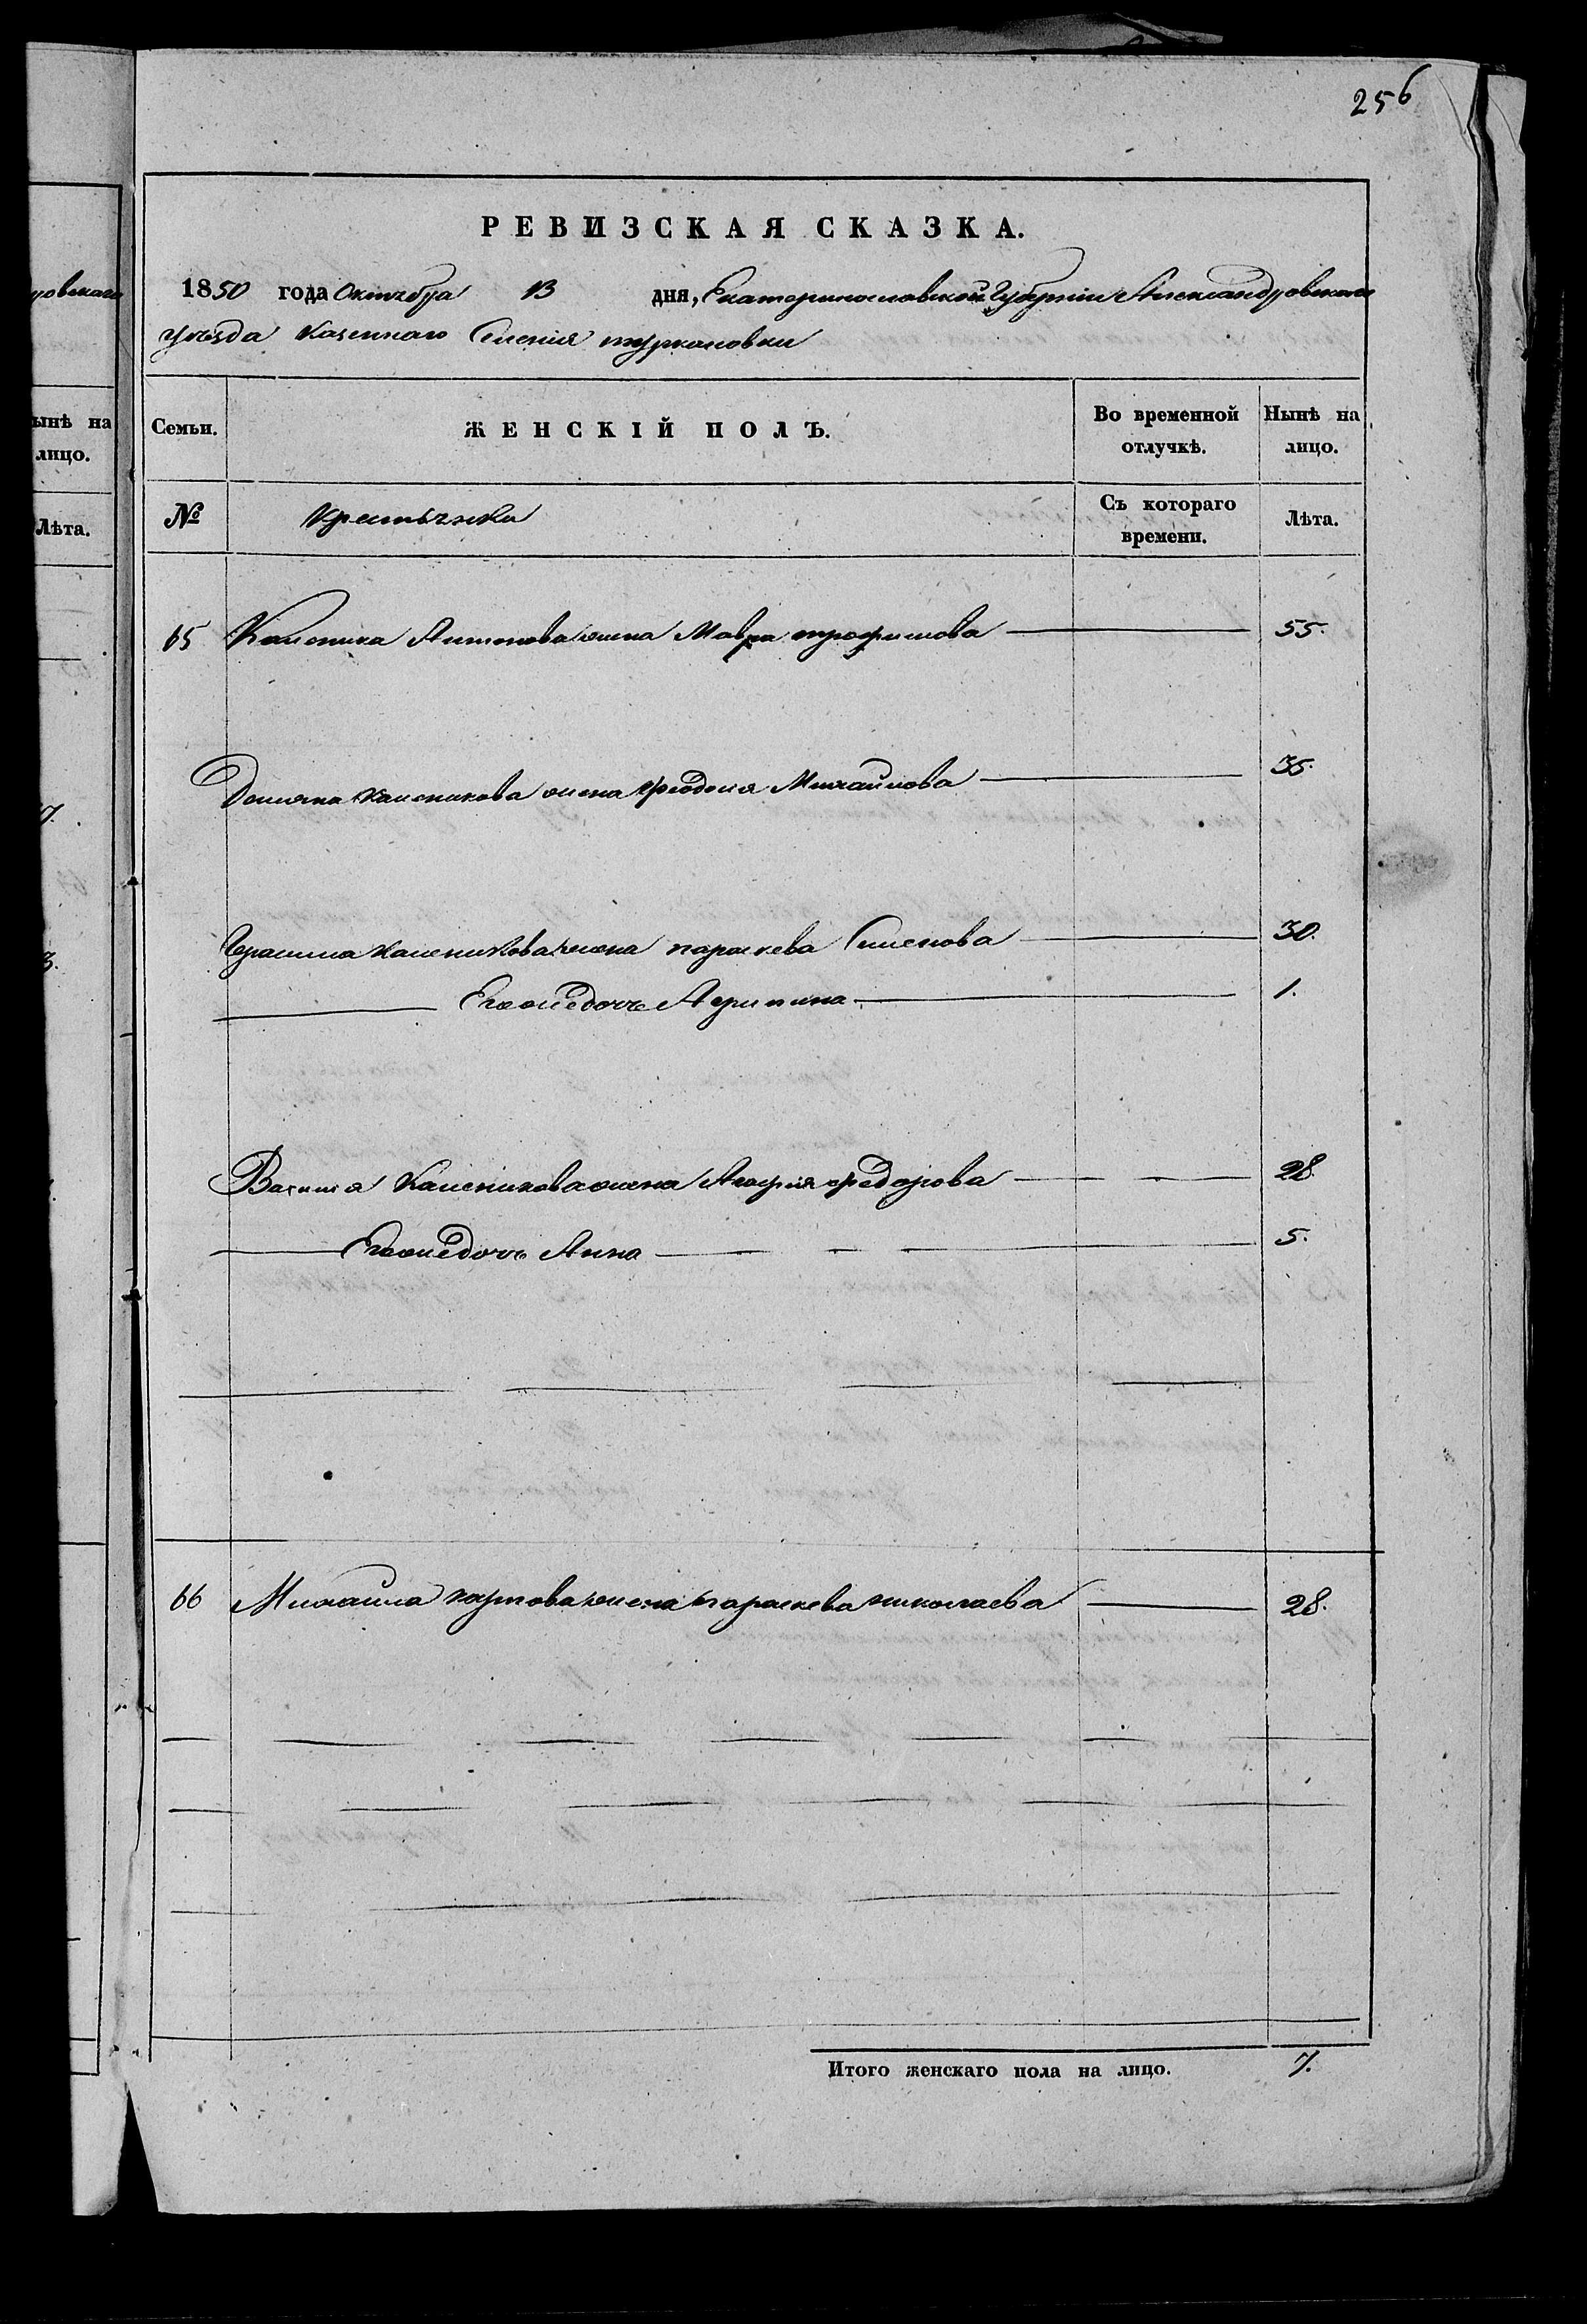 256
РЕВИЗСКАЯ СКАЗКА.
1850 года Октября 13 дня, Екатеринославской Губернии Александровскаго
уезда Казеннаго Селения туркеновки
Семьи.
ЖЕНСКІЙ ПОЛЪ.
Во временной отлучкѣ.
Нынѣ на лицо.
№
Крестьянки
Съ котораго времени.
Лѣта.
65 Каленика Антонова жена Мавра трофимова 55.
Демяна Каленикова жена Феодосия Михайлова 35.
Герасима Каленикова жена параскева Семенова 30.
Егоже дочь Агрипина 1.
Василия Каленикова жена Агафия федорова 28
Егоже дочь Анна 5.
66 Михайла жена параскева николаева 28.
Итого женскаго пола на лицо. 7.
ынѣ на
лицо.
Лѣта.